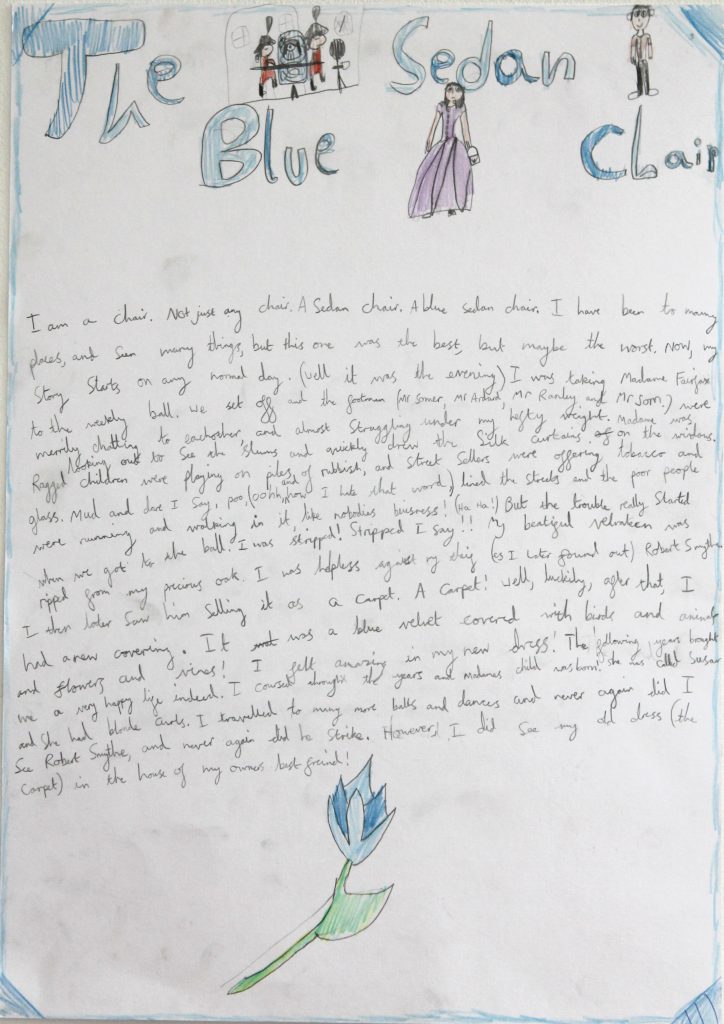 The Blue Sedan Chair
I am a chair. Not just any chair. A Sedan chair. A blue sedan chair. I have been to many
places, and seen many things, but this one was the best, but maybe the worst. Now, my
Story Starts on any normal day. (well it was the evening) I was taking Madame Fairfax
to the weekly ball. We set off and the footman (Mr Somer, Mr Ardord, Mr Ranley and Mr Sorn.) were
merrily chatting to eachother, and almost Straggling under my hefty weight. Madame was
looking out to see the slums and quickly drew the Silk curtains on the windows.
Ragged children were playing on piles of rubbish, and Street Sellers were offering tobacco and
glass. Mud and dare I say, poo, (oohh, and how I hate that word) lined the streets and the poor people
were running and walking in it, like nobodies beusness! (Ha Ha!) But the trouble really Started
when we got to the ball. I was stripped! Stripped I say!! My beatiful velvateen was
ripped from my precious oak. I was helpless against my theig (as I later found out) Robert Smythe.
I then later Saw him Selling it as a carpet. A Carpet! Well, luckily, after that, I
had a new covering. It was a blue velvet covered with birds and animals
and flowers and vines! I felt amazing in my new dress! The following years brought
me a very happy life indeed. I coursed throught the years and madames child was born. She was called Susan
and She had blonde curls. I travelled to many more balls and dances and never again did I
See Robert Smythe, and never again did he Strike. However, I did See my old dress (the
Carpet) in the house of my owners best freind!